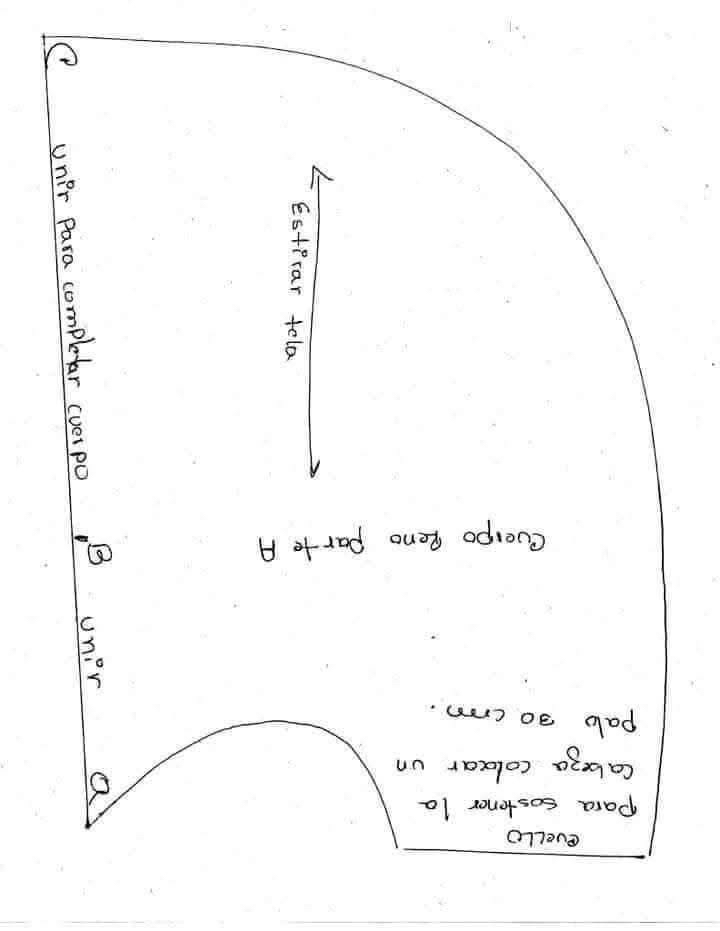 C
unir para completar cuerpo
B
unir
a
Estirar tela
Cuerpo Reno Parte A
cuello
para sostener la
cabeza colocar un
palo 30 cmm.